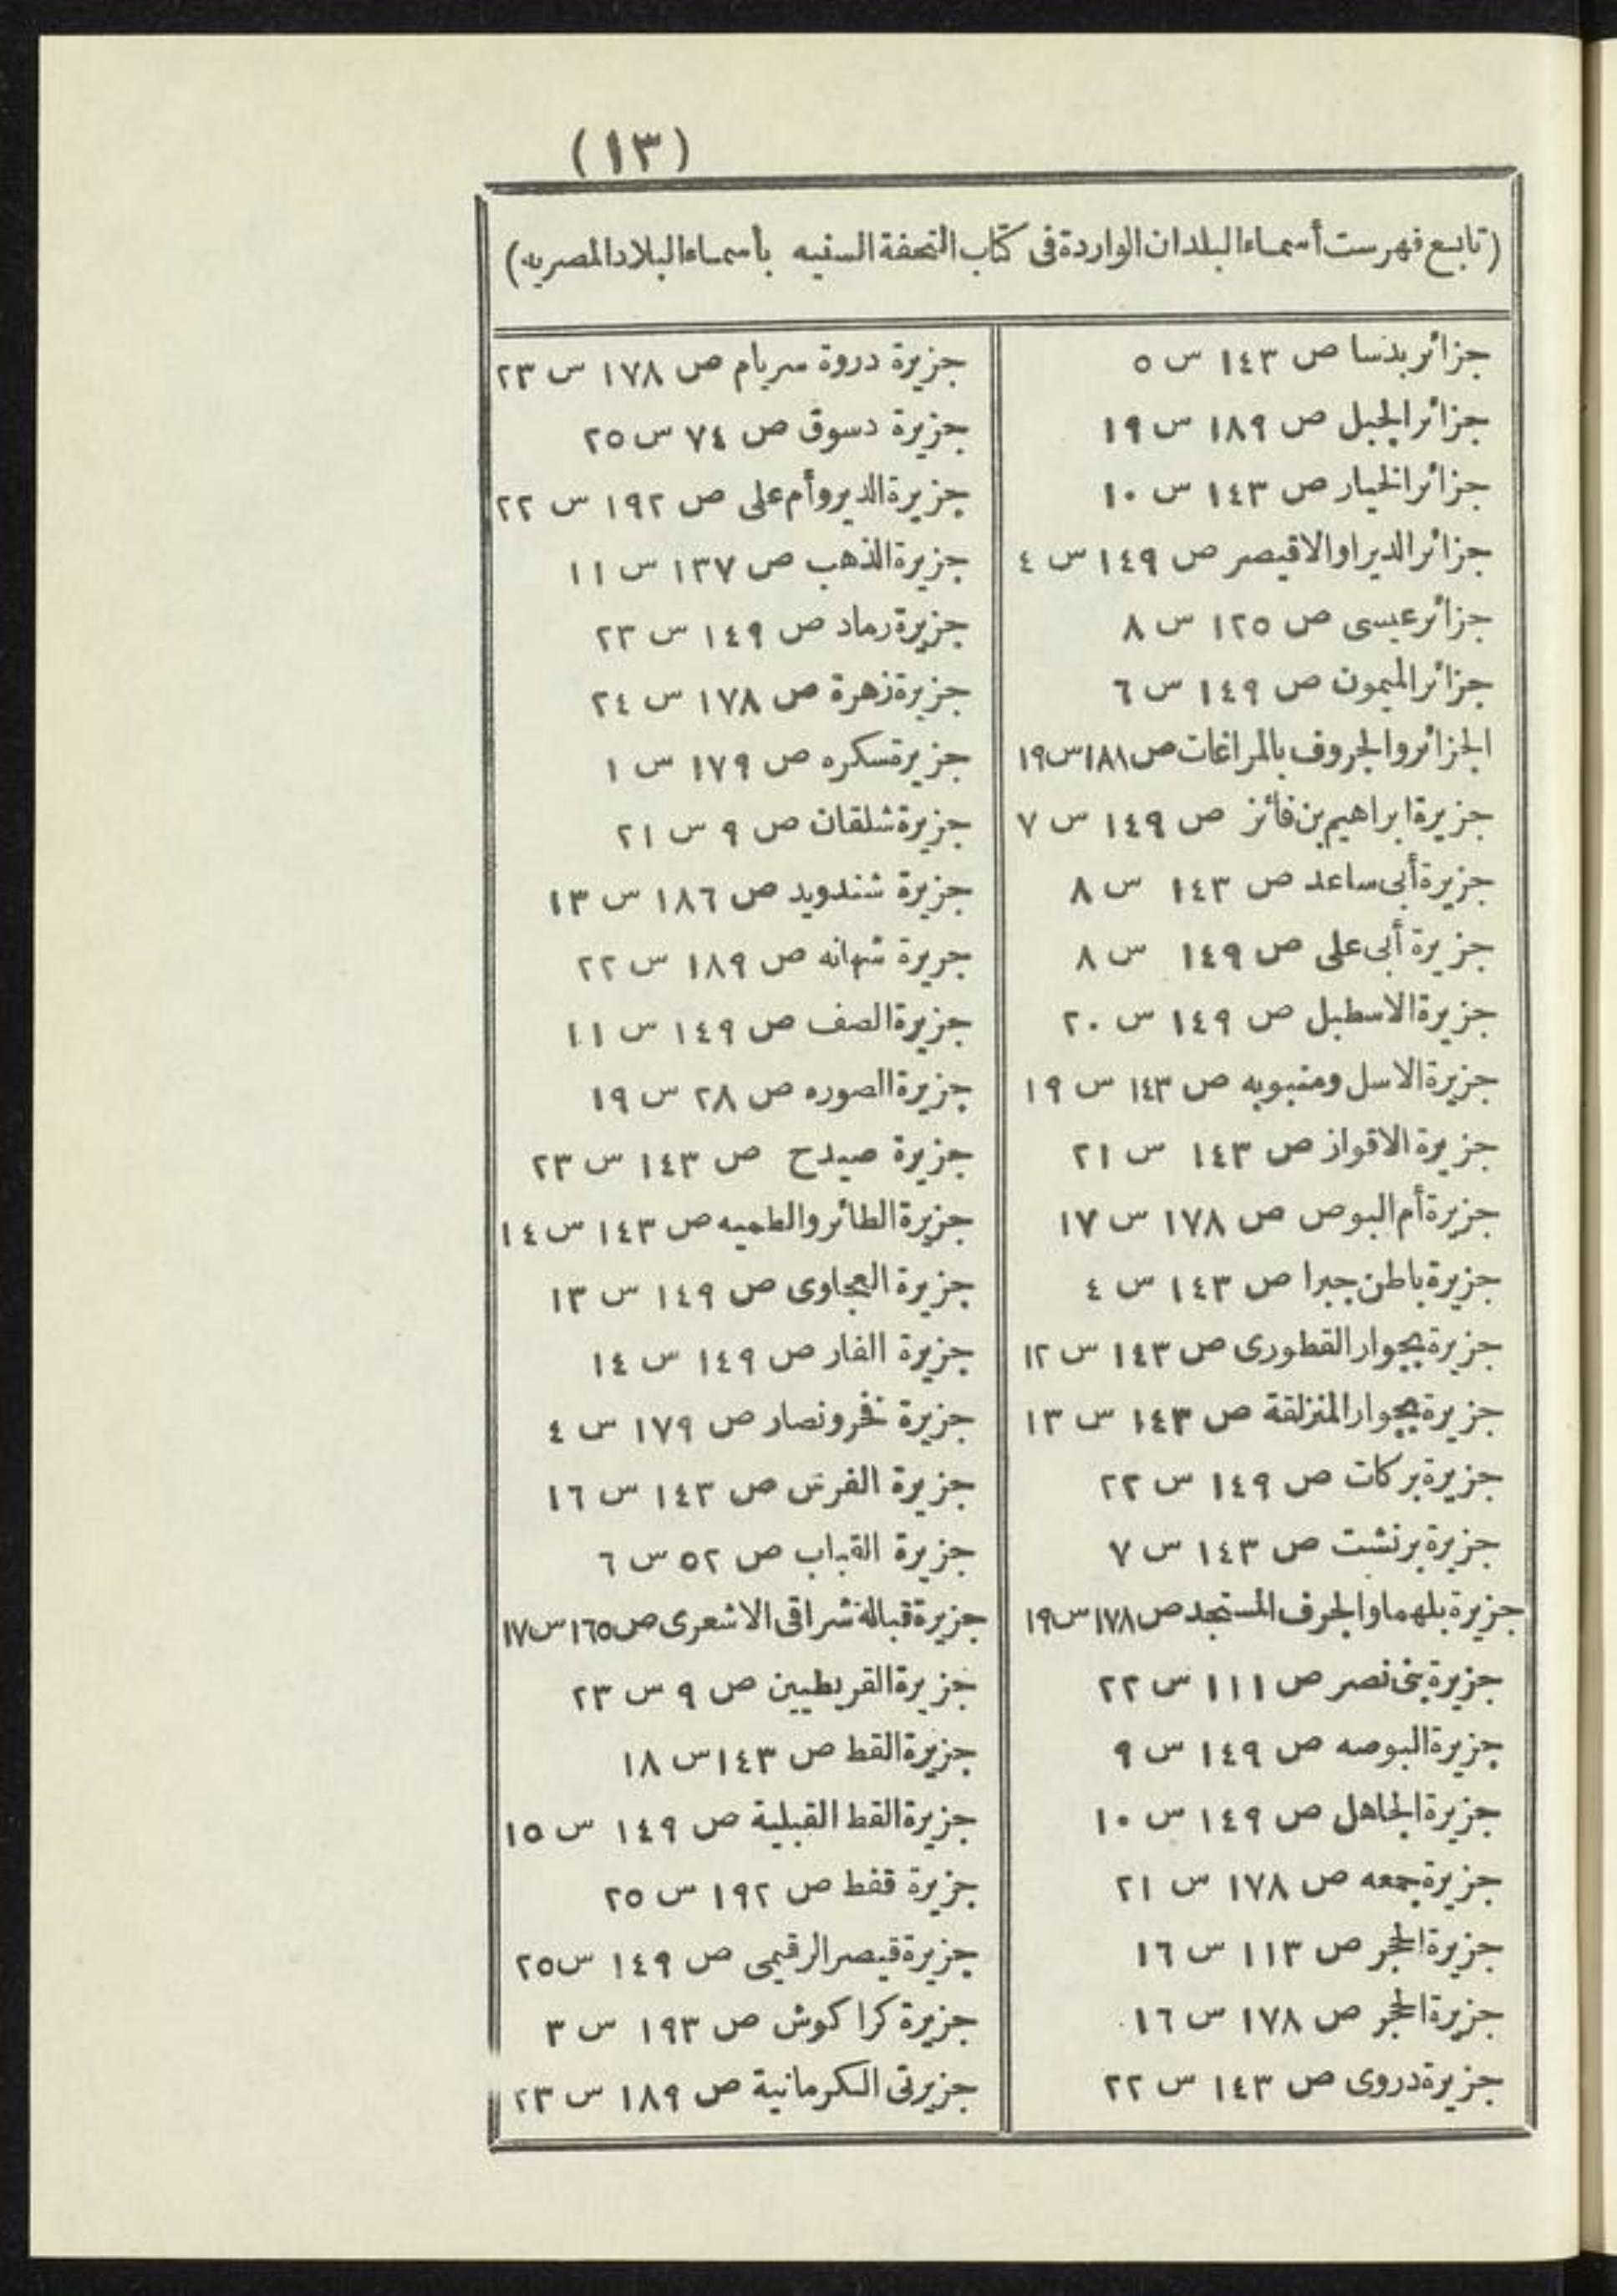 (١٣)
(تابع فهرست أسماء البلدان الواردة فى كتاب التحفة السنيه بأسماء البلاد المصريه)
جزائر بدنسا ص ١٤٣ س ٥
جزائر الجبل ص ١٨٩ س ١٩
جزائر الخيار ص ١٤٣ س ١٠
جزائر الديراوالاقيصر ص ١٤٩ س ٤
جزائر عيسى ص ١٢٥ س ٨
جزائر الميمون ص ١٤٩ س ٦
الجزائر والجروف بالمراغات ص ١٨١ س ١٩
جزيرة ابراهيم بن فائز ص ١٤٩ س ٧
جزيرة أبى ساعد ص ١٤٣ س ٨
جزيرة أبى على ص ١٤٩ س ٨
جزيرة الاسطبل ص ١٤٩ س ٢٠
جزيرة الاسل ومنبوبه ص ١٤٣ س ١٩
جزيرة الاقواز ص ١٤٣ س ٢١
جزيرة أم البوص ص ١٧٨ س ١٧
جزيرة باطن جبرا ص ١٤٣ س ٤
جزيرة بجوار القطورى ص ١٤٣ س ١٢
جزيرة بجوار المنزلقة ص ١٤٣ س ١٣
جزيرة بركات ص ١٤٩ س ٢٢
جزيرة برنشت ص ١٤٣ س ٧
جزيرة بلهما والجرف المستجد ص ١٧٨ س ١٩
جزيرة بنى نصر ص ١١١ س ٢٢
جزيرة البوصه ص ١٤٩ س ٩
جزيرة الجاهل ص ١٤٩ س ١٠
جزيرة جمعه ص ١٧٨ س ٢١
جزيرة الحجر ص ١١٣ س ١٦
جزيرة الحجر ص ١٧٨ س ١٦
جزيرة دروى ص ١٤٣ س ٢٢
جزيرة دروة سريام ص ١٧٨ س ٢٣
جزيرة دسوق ص ٧٤ س ٢٥
جزيرة الدير وأم على ص ١٩٢ س ٢٢
جزيرة الذهب ص ١٣٧ س ١١
جزيرة رماد ص ١٤٩ س ٢٣
جزيرة زهرة ص ١٧٨ س ٢٤
جزيرة سكره ص ١٧٩ س ١
جزيرة شلقان ص ٩ س ٢١
جزيرة شندويد ص ١٨٦ س ١٣
جريرة شهانه ص ١٨٩ س ٢٢
جزيرة الصف ص ١٤٩ س ١١
جزيرة الصوره ص ٢٨ س ١٩
جزيرة صيدح ص ١٤٣ س ٢٣
جزيرة الطائر والطميه ص ١٤٣ س ١٤
جزيرة العجاوى ص ١٤٩ س ١٣
جزيرة الفار ص ١٤٩ س ١٤
جزيرة فخر ونصار ص ١٧٩ س ٤
جزيرة الفرس ص ١٤٣ س ١٦
جزيرة القباب ص ٥٢ س ٦
جزيرة قبالة شراقى الاشعرى ص ١٦٥ س ١٧
جزيرة القريطيين ص ٩ س ٢٣
جزيرة القط ص ١٤٣ س ١٨
جزيرة القط القبلية ص ١٤٩ س ١٥
جزيرة قفط ص ١٩٢ س ٢٥
جزيرة قيصر الرقيمى ص ١٤٩ س ٢٥
جزيرة كراكوش ص ١٩٣ س ٣
جزيرتى الكرمانية ص ١٨٩ س ٢٣